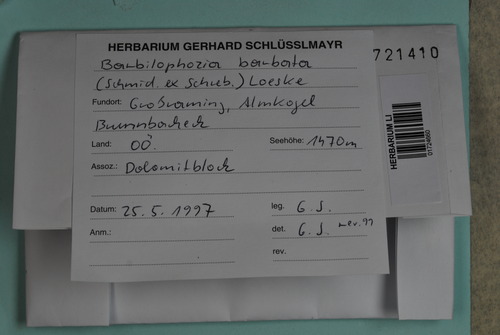 HERBARIUM GERHARD SCHLÜSSLMAYR
721410
Barbilophozia barbata
(Schmid. ex Schreb.) Loeske
Fundort: Großraming, Almkogel
Land: OÖ. Seehöhe: 1470m
Assoz.: Dolomitblock
Datum: 25.5.1997 leg. G.S.
Anm.: det. G.S. rev. 99
rev.
HERBARIUM LI
01724660